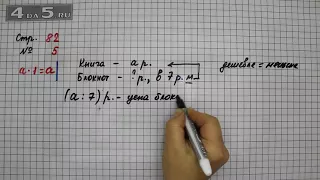 4 U A 5 . R U
Стр. 82
№ 5
а · 1 = а
Книга – а р.
Блокнот – ? р., в 7 р. м.
дешевле = меньше
(а : 7) р. – цена блок